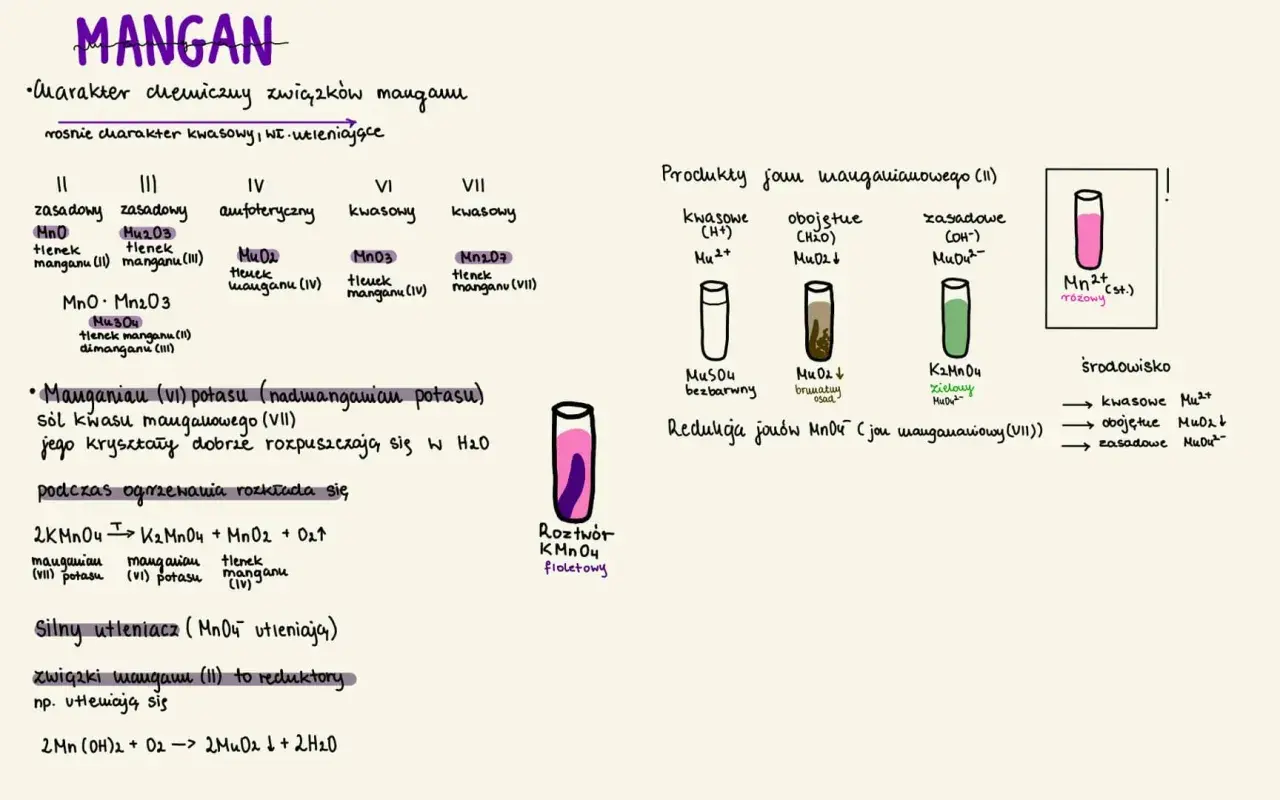 MANGAN
•Charakter chemiczny związków manganu
rośnie charakter kwasowy, wł. utleniające
II III IV VI VII
zasadowy zasadowy amfoteryczny kwasowy kwasowy
MnO Mn2O3 MnO2 MnO3 Mn2O7
tlenek manganu (II)
tlenek manganu (III)
tlenek manganu (IV)
tlenek manganu (IV)
tlenek manganu (VII)
MnO · Mn2O3
Mn3O4
tlenek manganu (II)
dimanganu (III)
• Manganian (VI) potasu (nadmanganian potasu)
sól kwasu manganowego (VII)
jego kryształy dobrze rozpuszczają się w H2O
podczas ogrzewania rozkłada się
2KMnO4 T→ K2MnO4 + MnO2 + O2↑
manganian (VII) potasu
manganian (VI) potasu
tlenek manganu (IV)
Silny utleniacz (MnO4⁻ utleniają)
związki manganu (II) to reduktory
np. utleniają się
2Mn(OH)2 + O2 —> 2MnO2 ↓ + 2H2O
Roztwór
KMnO4
fioletowy
Produkty jonu manganianowego (II)
kwasowe obojętne zasadowe
(H+) (H2O) (OH⁻)
Mn²⁺ MnO2↓ MnO4²⁻
MnSO4 MnO2↓ K2MnO4
bezbarwny brunatny osad zielony
MnO4²⁻
Redukcja jonów MnO4⁻ (jon manganianowy (VII))
!
Mn²⁺ (st.)
różowy
środowisko
→ kwasowe Mn²⁺
→ obojętne MnO2↓
→ zasadowe MnO4²⁻